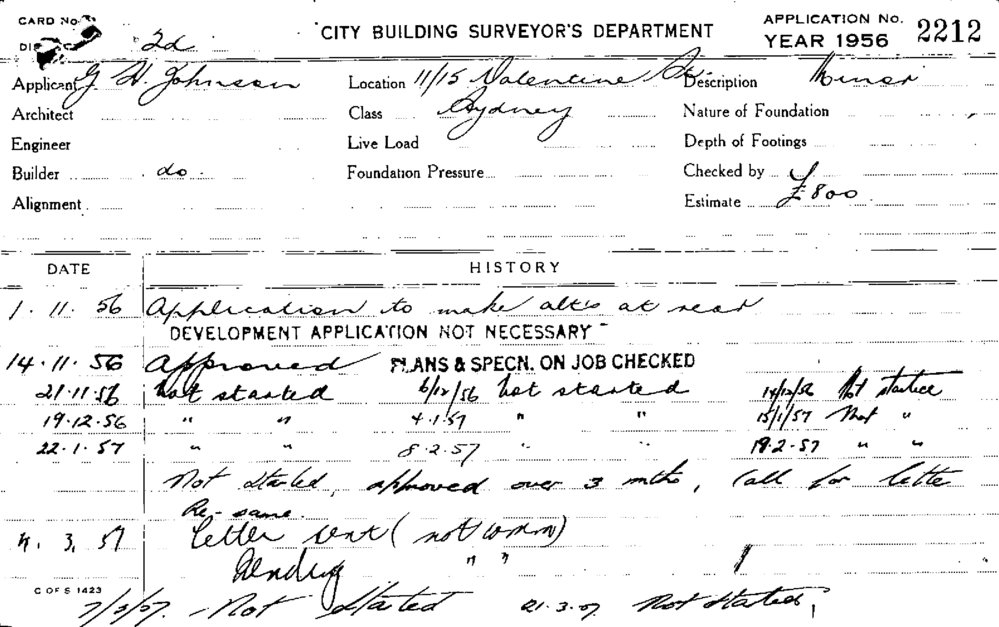 CARD No. CITY BUILDING SURVEYOR'S DEPARTMENT APPLICATION No. 2212
2d YEAR 1956
Applicant G H Johnson Location 11/15 Valentine St. Description Minor
Architect Class Sydney Nature of Foundation
Engineer Live Load Depth of Footings
Builder do Foundation Pressure Checked by
Alignment Estimate £800
DATE HISTORY
1.11.56 Application to make alts at rear
DEVELOPMENT APPLICATION NOT NECESSARY
14.11.56 Approved PLANS & SPECN. ON JOB CHECKED
21.11.56 Not started 6/12/56 Not started 14/12/56 Not started
19.12.56 " " 4.1.57 " " 15/1/57 Not "
22.1.57 " " 8.2.57 " " 19.2.57 " "
Not started, approved over 3 mths, Call for letter
Re- same.
3.57 letter sent (not comm)
" "
C OF S 1423
7/3/57. - Not Started 21.3.57 Not Started,